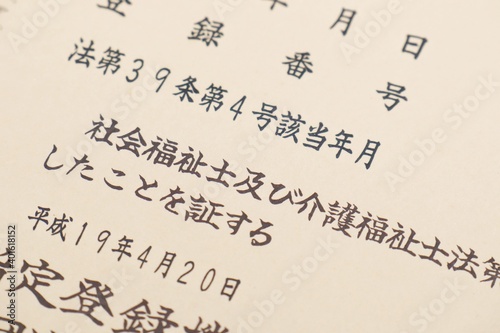 年月日
登録番号
法第39条第4号該当年月
社会福祉士及び介護福祉士法第
したことを証する
平成19年4月20日
定登録機